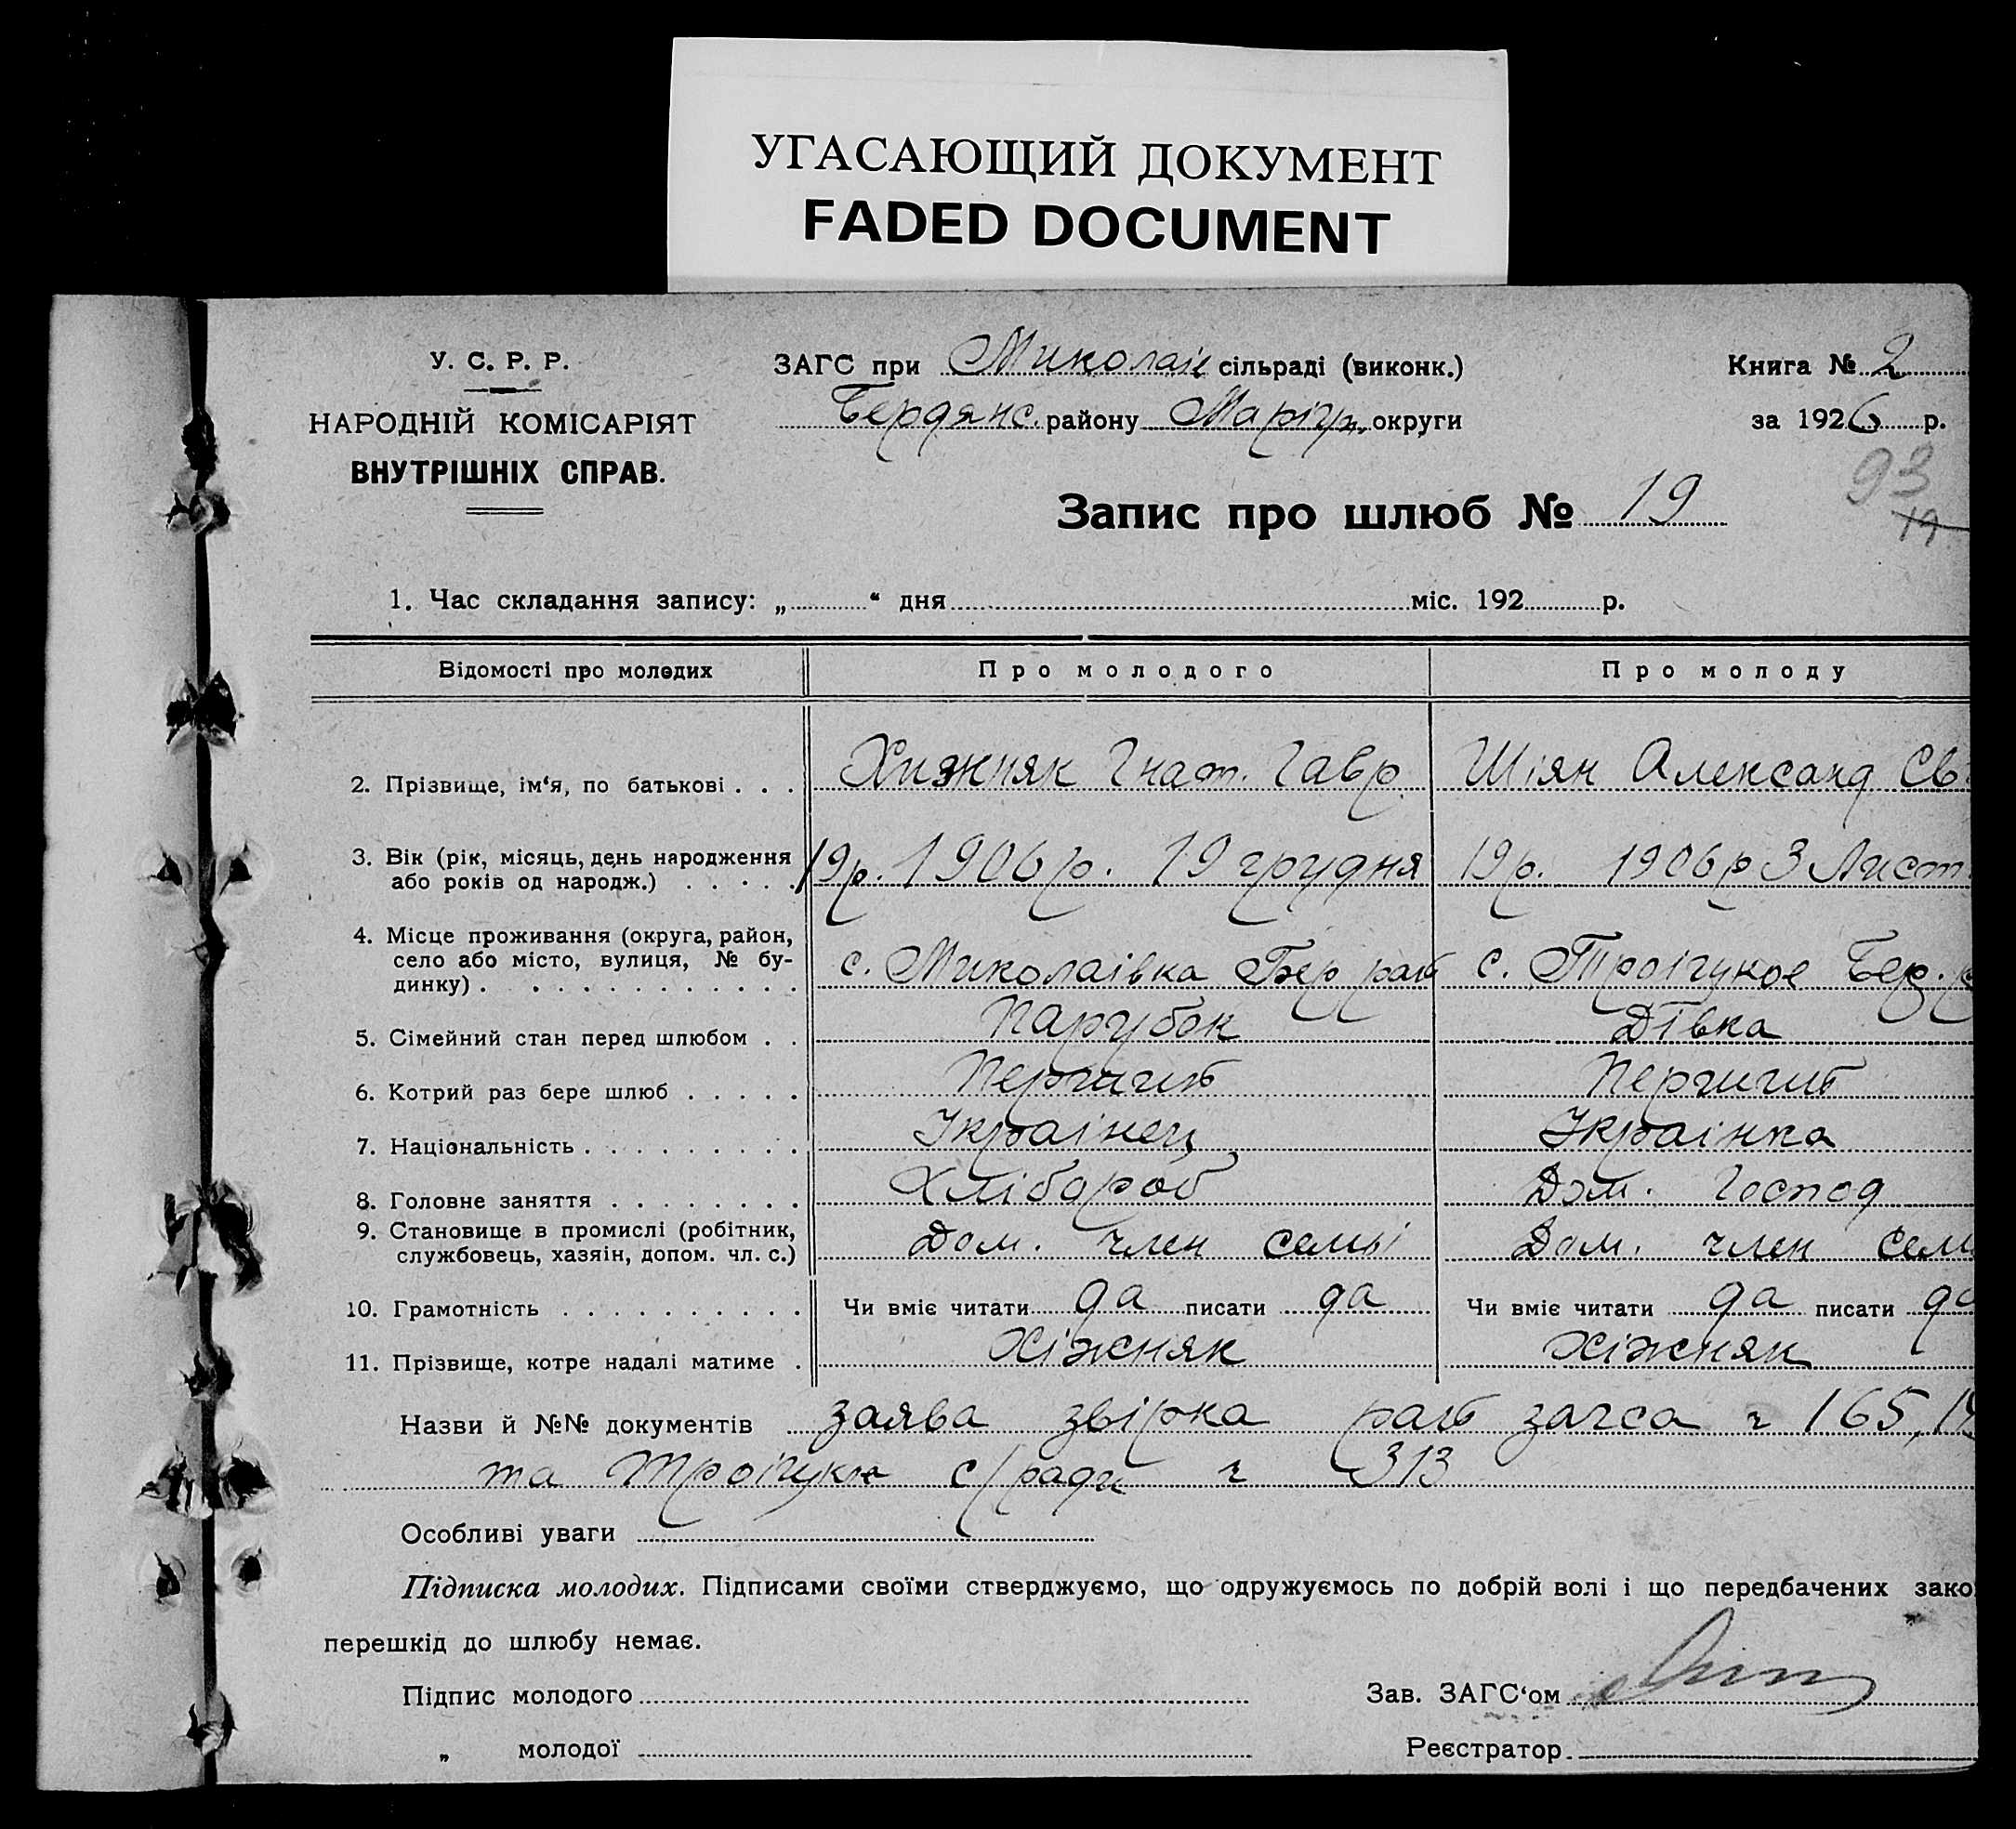 УГАСАЮЩИЙ ДОКУМЕНТ
FADED DOCUMENT
У. С. Р. Р.
НАРОДНІЙ КОМІСАРІЯТ
ВНУТРІШНІХ СПРАВ.
ЗАГС при Миколаів сільраді (виконк.)
Бердянс. району Маріуп. округи
Книга № 2
за 1926 р.
93
19
Запис про шлюб № 19
1. Час складання запису: „ “ дня міс. 192 р.
Відомості про молодих Про молодого Про молоду
2. Прізвище, ім‘я, по батькові . . . Хижняк Гнат. Гавр. Шіян Александ Св
3. Вік (рік, місяць, день народження
або років од народж.) . . . . . 19р. 1906р. 19 грудня 19р. 1906р 3 Лист.
4. Місце проживання (округа, район,
село або місто, вулиця, № бу-
динку) . . . . . . . . . . . . с. Миколаівка Бер рай с. Троіцкое Бер. р
5. Сімейний стан перед шлюбом . . Парубок Дівка
6. Котрий раз бере шлюб . . . . . Перший Перший
7. Національність . . . . . . . . . Украінец Украінка
8. Головне заняття . . . . . . . . Хлібороб Дом. Господ
9. Становище в промислі (робітник,
службовець, хазяін, допом. чл. с.) Дом. член семьі Дом. член сем
10. Грамотність . . . . . . . . . . Чи вміє читати да писати да Чи вміє читати да писати да
11. Прізвище, котре надалі матиме . Хіжняк Хіжняк
Назви й №№ документів заява звірка рай загса ч 165, 19
та Троіцкое с/ради ч 313
Особливі уваги
Підписка молодих. Підписами своїми стверджуємо, що одружуємось по добрій волі і що передбачених зако
перешкід до шлюбу немає.
Підпис молодого Зав. ЗАГС‘ом
„ молодої Реєстратор